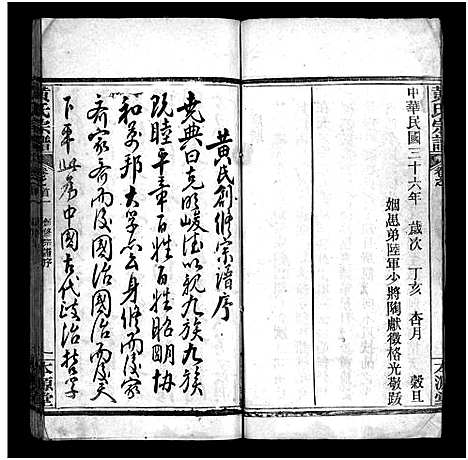 黃氏宗譜
卷之
中華民國三十六年 歲次 丁亥 杏月 穀旦
姻愚弟陸軍少將陶獻徵格光敬跋
本源堂
黃氏創修宗譜序
堯典曰克明峻德以親九族九族
既睦平章百姓百姓昭明協
和萬邦大學亦云身修而後家
齊家齊而後國治國治而後天
下平此為中國古代政治哲學
黃氏宗譜
卷之首
創修宗譜序
本源堂